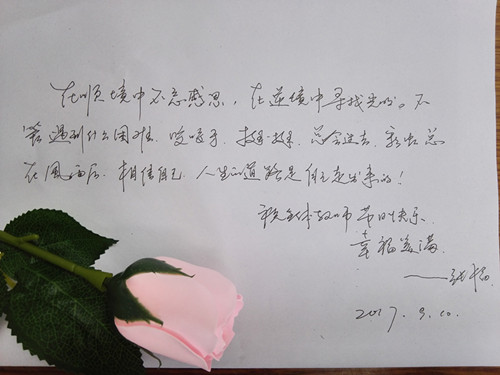 在顺境中不忘感恩，在逆境中寻找光明。不
管遇到什么困难，咬咬牙，挺一挺，总会过去，彩虹总
在风雨后，相信自己，人生的道路是自己走出来的！
祝全体教师节日快乐，
幸福美满。
2017.9.10.